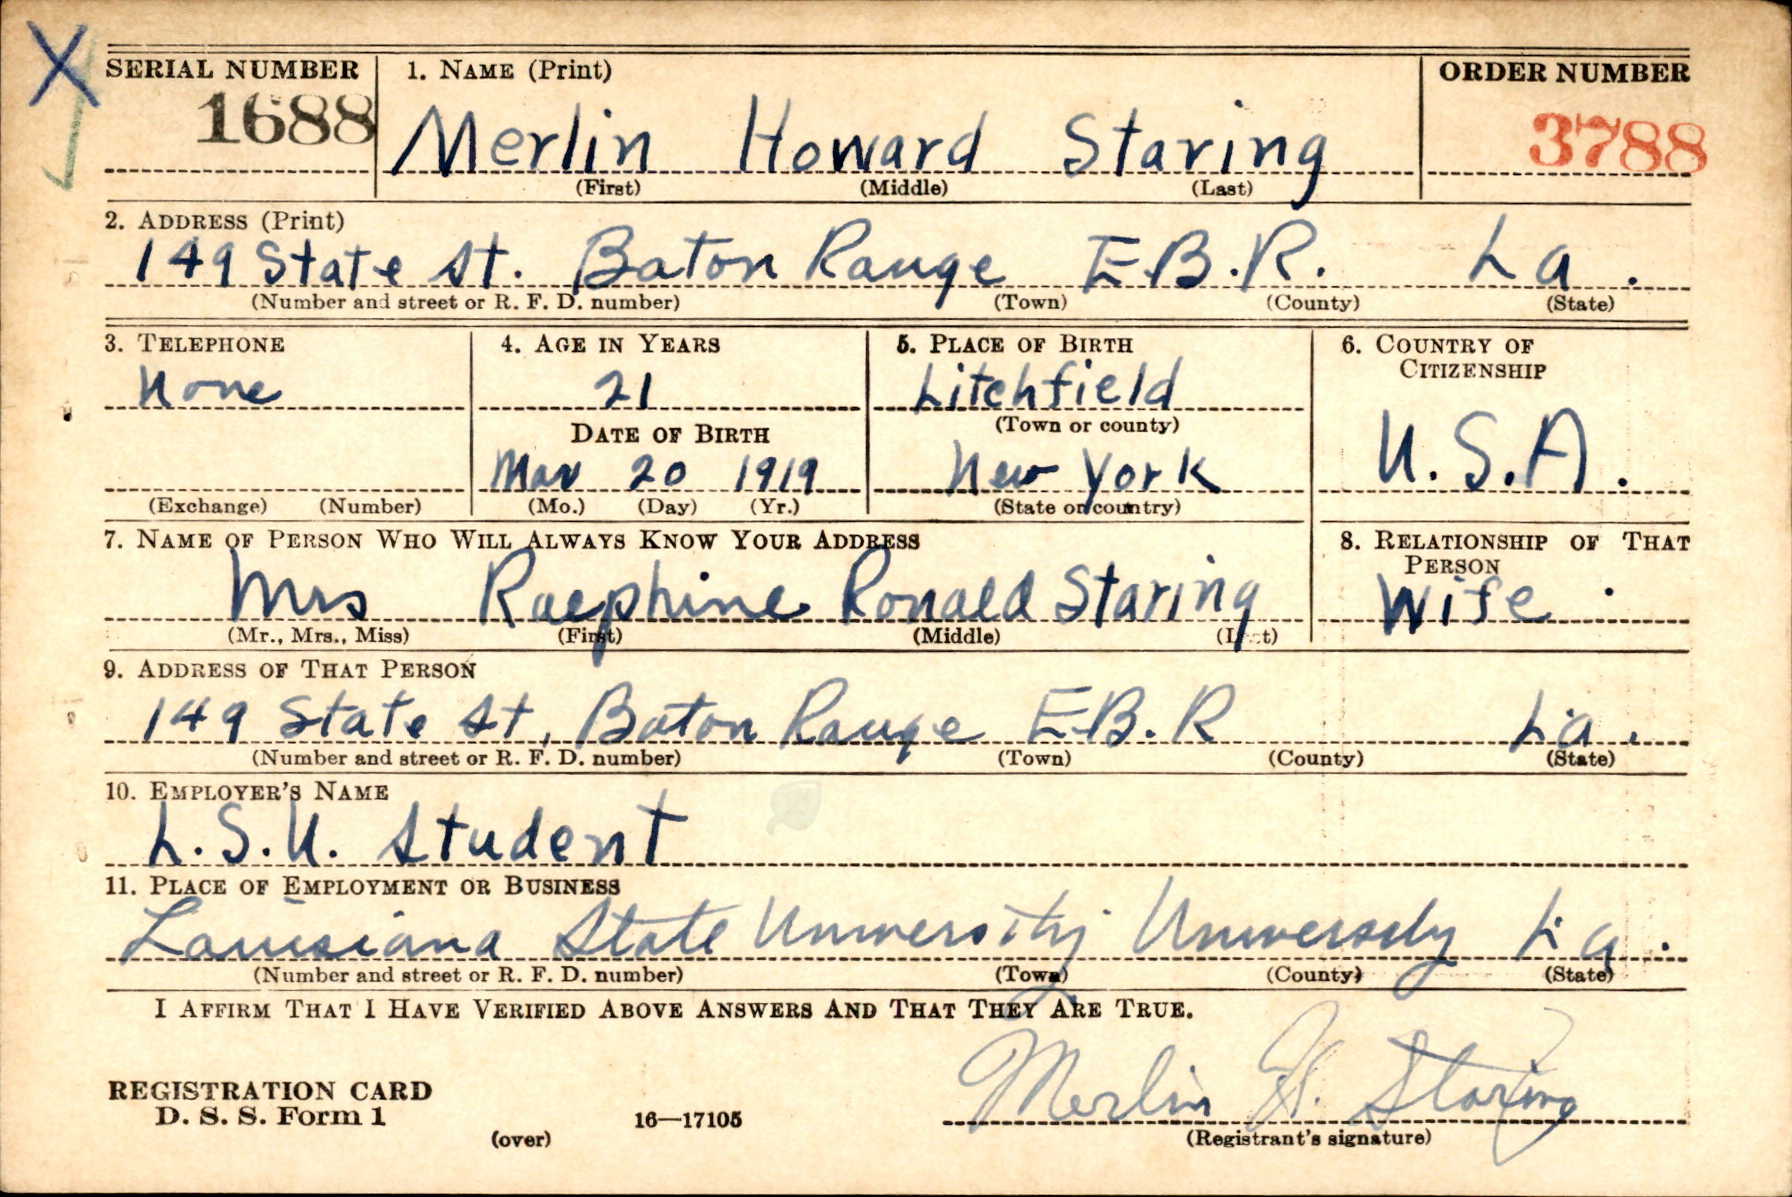 SERIAL NUMBER 1. NAME (Print) ORDER NUMBER
1688 Merlin Howard Staring 3788
(First) (Middle) (Last)
2. ADDRESS (Print)
149 State St. Baton Rouge E.B.R. La.
(Number and street or R. F. D. number) (Town) (County) (State)
3. TELEPHONE 4. AGE IN YEARS 5. PLACE OF BIRTH 6. COUNTRY OF CITIZENSHIP
None 21 Litchfield
DATE OF BIRTH (Town or county)
Mar 20 1919 New York U.S.A.
(Exchange) (Number) (Mo.) (Day) (Yr.) (State or country)
7. NAME OF PERSON WHO WILL ALWAYS KNOW YOUR ADDRESS 8. RELATIONSHIP OF THAT PERSON
Mrs Raephine Ronald Staring Wife.
(Mr., Mrs., Miss) (First) (Middle) (Last)
9. ADDRESS OF THAT PERSON
149 State St, Baton Rouge E.B.R La.
(Number and street or R. F. D. number) (Town) (County) (State)
10. EMPLOYER'S NAME
L.S.U. Student
11. PLACE OF EMPLOYMENT OR BUSINESS
Louisiana State University University La.
(Number and street or R. F. D. number) (Town) (County) (State)
I AFFIRM THAT I HAVE VERIFIED ABOVE ANSWERS AND THAT THEY ARE TRUE.
Merlin H. Staring
REGISTRATION CARD
D. S. S. Form 1 16—17105
(over) (Registrant's signature)